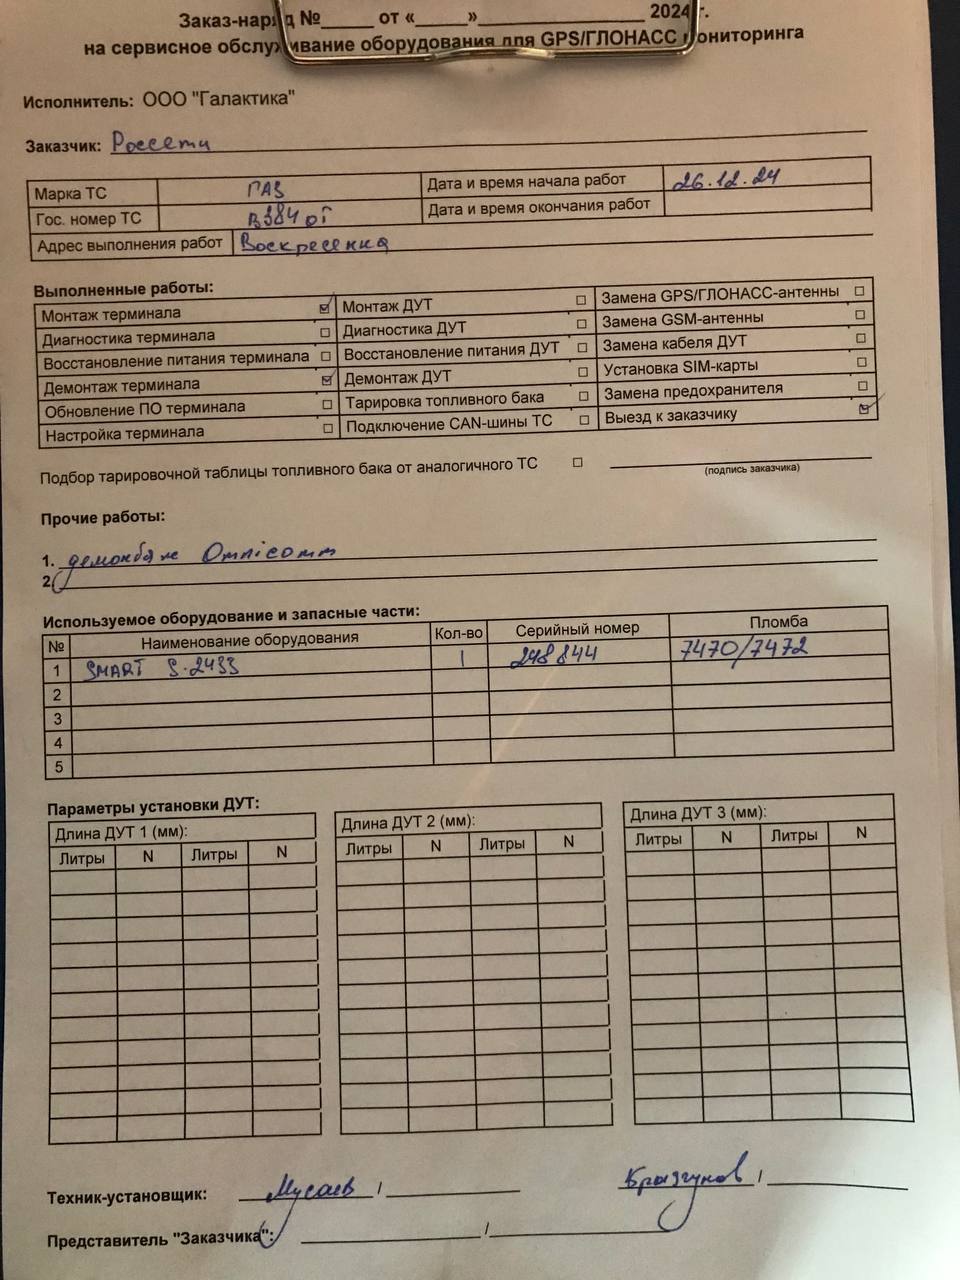 Заказ-наряд №_____ от «_____»________________ 2024 г.
на сервисное обслуживание оборудования для GPS/ГЛОНАСС мониторинга
Исполнитель: ООО "Галактика"
Заказчик: Россети
Марка ТС ГАЗ Дата и время начала работ 26.12.24
Гос. номер ТС В384ОТ Дата и время окончания работ
Адрес выполнения работ Воскресенка
Выполненные работы:
Монтаж терминала ☑ Монтаж ДУТ ☐ Замена GPS/ГЛОНАСС-антенны ☐
Диагностика терминала ☐ Диагностика ДУТ ☐ Замена GSM-антенны ☐
Восстановление питания терминала ☐ Восстановление питания ДУТ ☐ Замена кабеля ДУТ ☐
Демонтаж терминала ☑ Демонтаж ДУТ ☐ Установка SIM-карты ☐
Обновление ПО терминала ☐ Тарировка топливного бака ☐ Замена предохранителя ☐
Настройка терминала ☐ Подключение CAN-шины ТС ☐ Выезд к заказчику ☑
Подбор тарировочной таблицы топливного бака от аналогичного ТС ☐
(подпись заказчика)
Прочие работы:
1. демонтаж Omnicomm
2.
Используемое оборудование и запасные части:
№ Наименование оборудования Кол-во Серийный номер Пломба
1 SMART S-2433 1 248844 7470/7472
2
3
4
5
Параметры установки ДУТ:
Длина ДУТ 1 (мм): Длина ДУТ 2 (мм): Длина ДУТ 3 (мм):
Литры N Литры N Литры N Литры N Литры N Литры N
Техник-установщик: Мусаев / Брызгунов /
Представитель "Заказчика": /